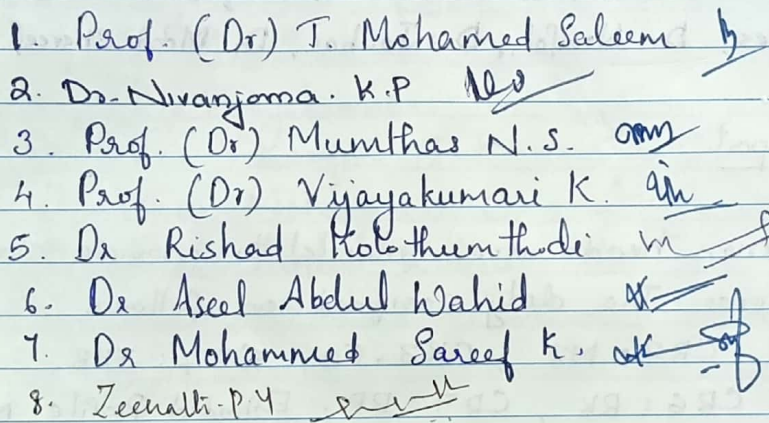 1. Prof. (Dr) T. Mohamed Saleem
2. Dr. Niranjana. K.P
3. Prof. (Dr) Mumthas N.S.
4. Prof. (Dr) Vijayakumari K.
5. Dr Rishad Kolothumthodi
6. Dr Aseel Abdul Wahid
7. Dr Mohammed Sareef K.
8. P.Y